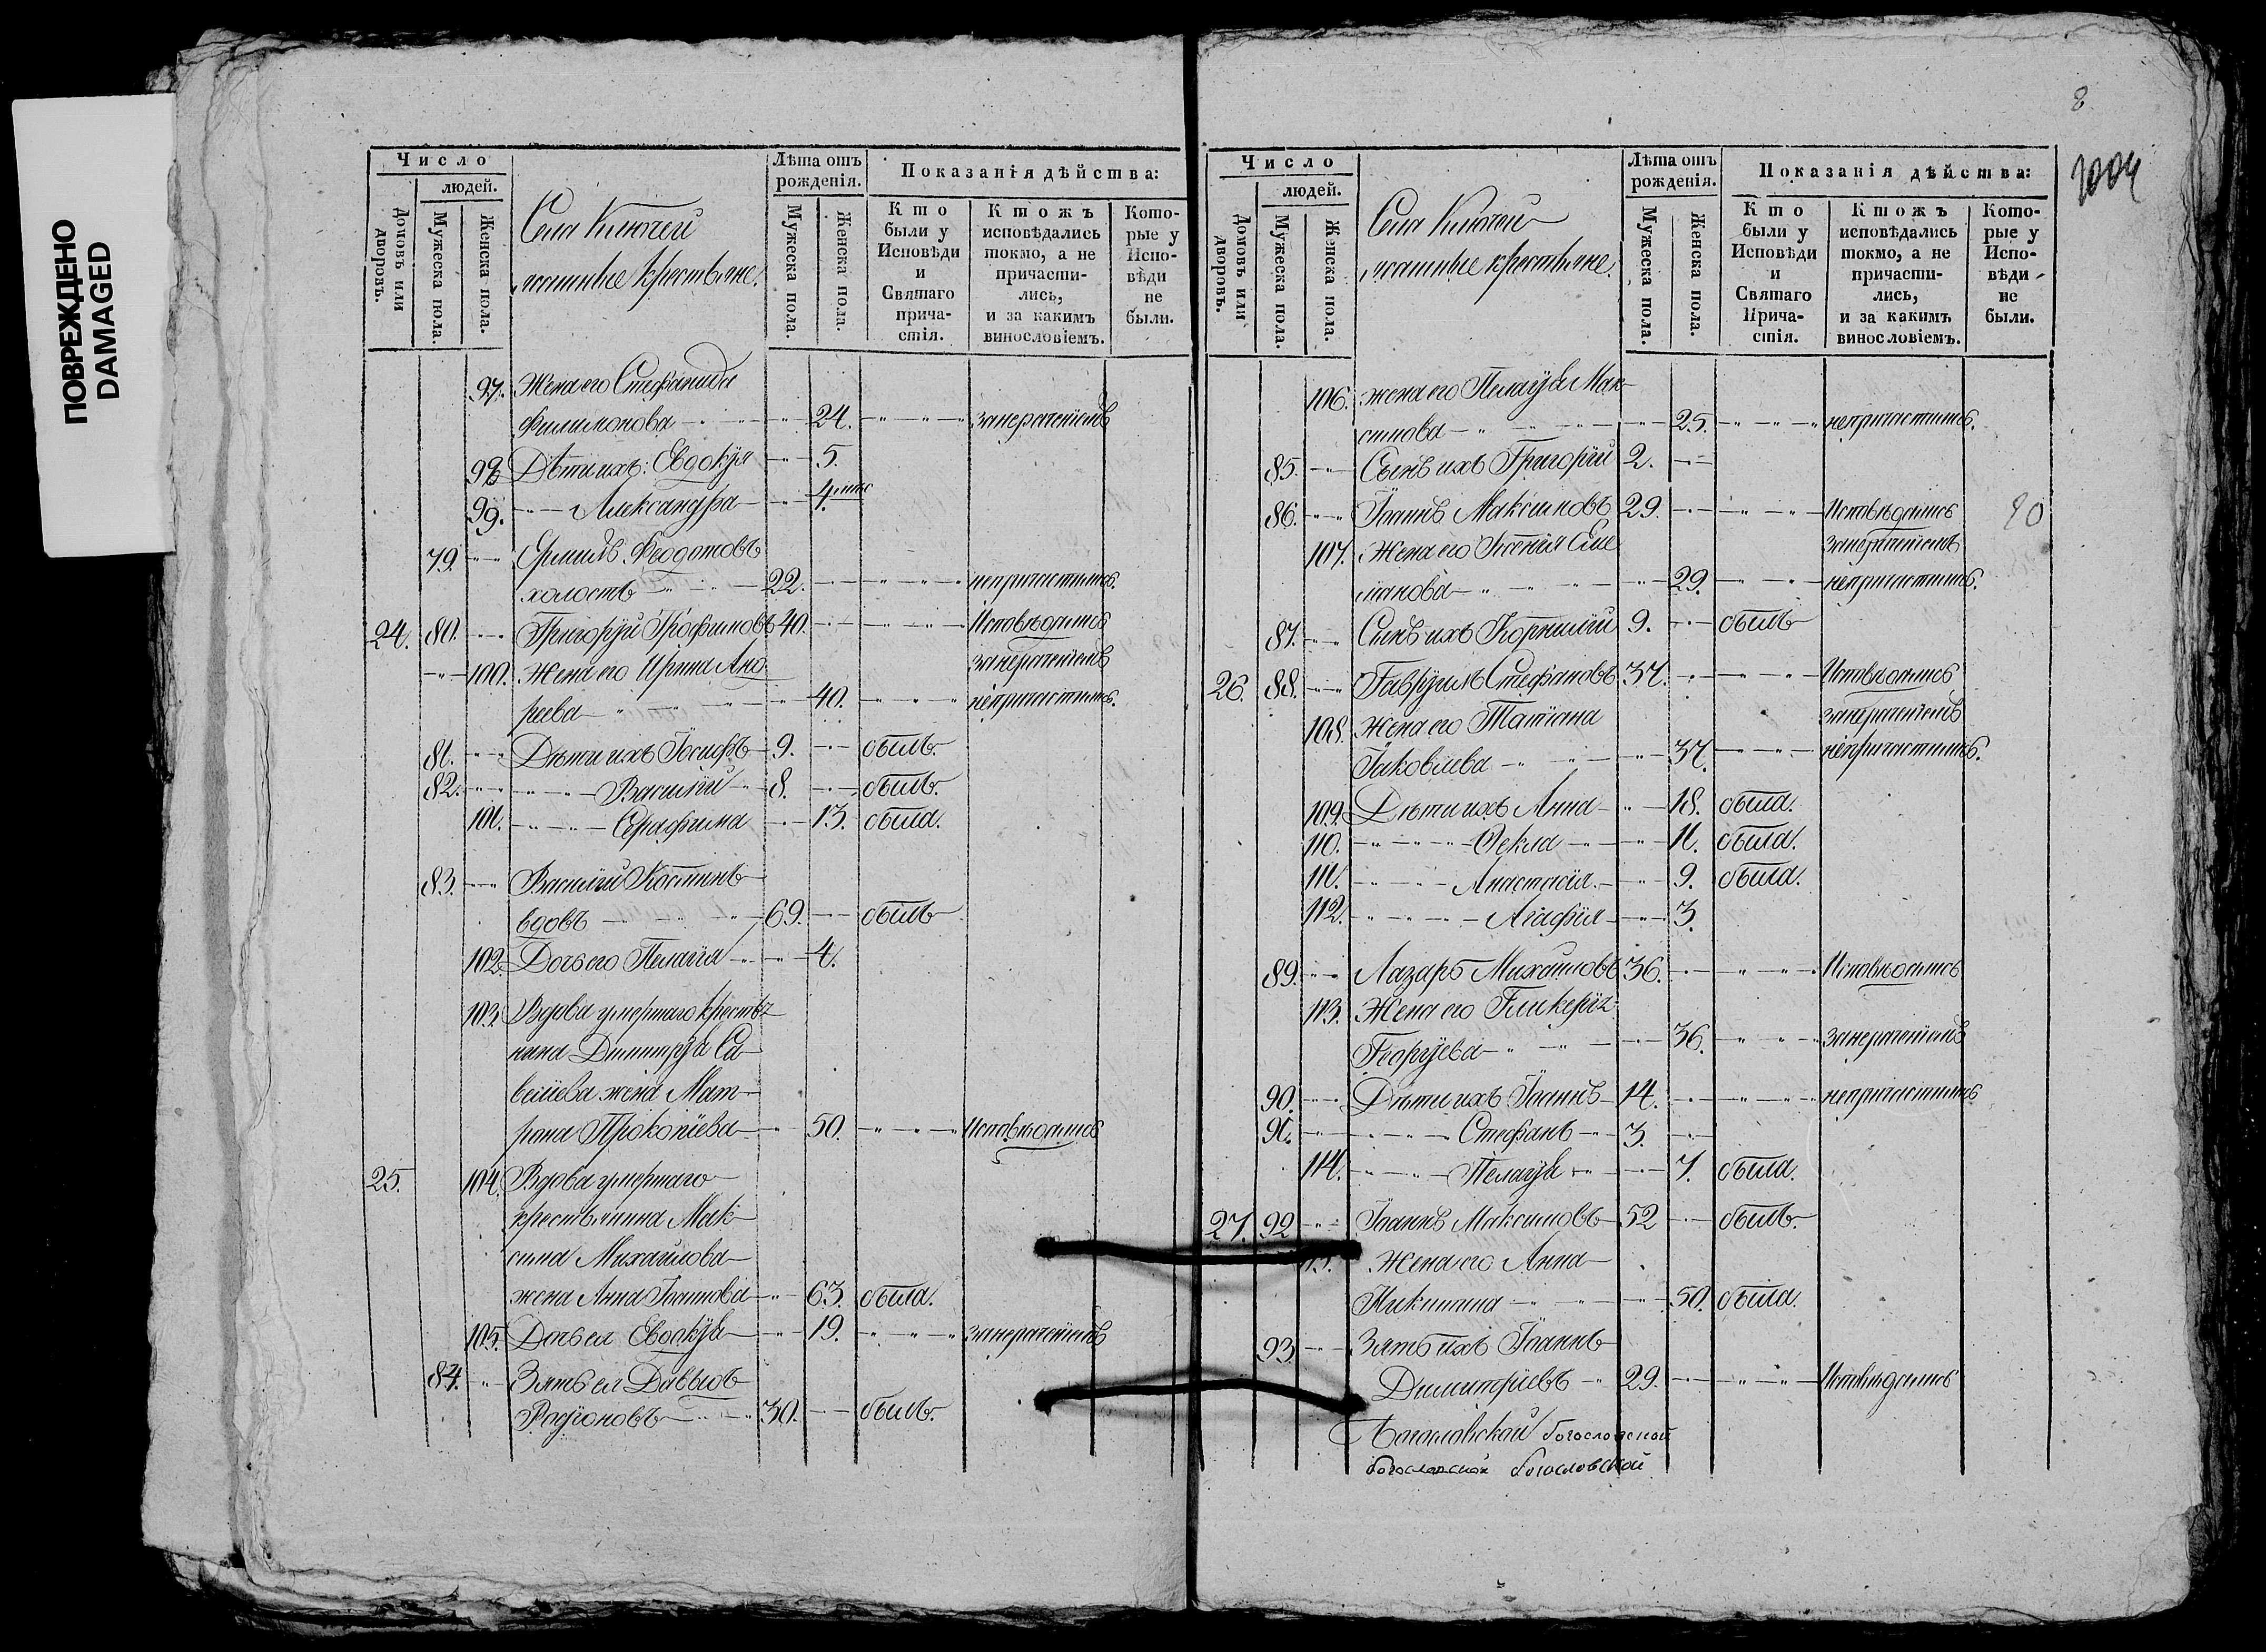 ПОВРЕЖДЕНО
DAMAGED
Число
людей.
Домовъ или дворовъ.
Мужеска пола.
Женска пола.
Села Ключей
ясашные крестьяне.
Лѣта отъ рожденія.
Мужеска пола.
Женска пола.
Показанія дѣйства:
Кто были у Исповѣди и Святаго прича-стія.
Ктожъ исповѣдались токмо, а не причасти-лись, и за какимъ винословіемъ.
Кото-рые у Испо-вѣди не были.
97. Жена его Стефанида
Филимонова 24. занераченіемъ
98 Дѣти ихъ: Евдокія 5.
99. Александра 4.
79. Ермилъ Феодотовъ
холостъ 22. непричастились.
24. 80. Григорій Трофимовъ 40. Исповѣдались
100. Жена его Ирина Анд занераченіемъ
реева 40. непричастились.
81. Дѣти ихъ Іосифъ 9. былъ.
82. Василій 8. былъ.
101. Серафима 13. была.
83. Василій Костинъ
вдовъ 69. былъ
102. Дочь его Пелагія 4.
103. Вдова умершаго крестья
нина Димитрія Са
вельева жена Мат
рона Прокопіева 50. Исповѣдались
25. 104. Вдова умершаго
крестьянина Мак
сима Михайлова
жена Анна Іоаннова 63. была.
105. Дочь ея Евдокія 19. занераченіемъ
84. Зять ея Давыдъ
Родіоновъ 30. былъ.
8
Число
людей.
Домовъ или дворовъ.
Мужеска пола.
Женска пола.
Села Ключей
ясашные крестьяне.
Лѣта отъ рожденія.
Мужеска пола.
Женска пола.
Показанія дѣйства:
Кто были у Исповѣди и Святаго Прича-стія.
Ктожъ исповѣдались токмо, а не причасти-лись, и за какимъ винословіемъ.
Кото-рые у Испо-вѣди не были.
106. жена его Пелагія Мак
симова 25. непричастились.
85. Сынъ ихъ Григорій 2.
86. Іоаннъ Максимовъ 29. Исповѣдались
107. Жена его Ксенія Сте занераченіемъ
панова 29. непричастились.
87. Сынъ ихъ Корнилій 9. былъ
26. 88. Гавріилъ Стефановъ 37. Исповѣдались
108. Жена его Татіана занераченіемъ
Іаковлева 37. непричастились.
109. Дѣти ихъ Анна 18. была.
110. Фекла 11. была.
111. Анастасія 9. была.
112. Агафія 3.
89. Лазарь Михайловъ 36. Исповѣдались
113. Жена его Гликерія
Георгіева 36. занераченіемъ
90. Дѣти ихъ Іоаннъ 14. непричастились
91. Стефанъ 3.
114. Пелагія 7. была.
27. 92 Іоаннъ Максимовъ 52 былъ.
Жена его Анна
Никитина 50. была.
93. Зять ихъ Іоаннъ
Димитріевъ 29. Исповѣдались
Богословской богословской
богословской богословской